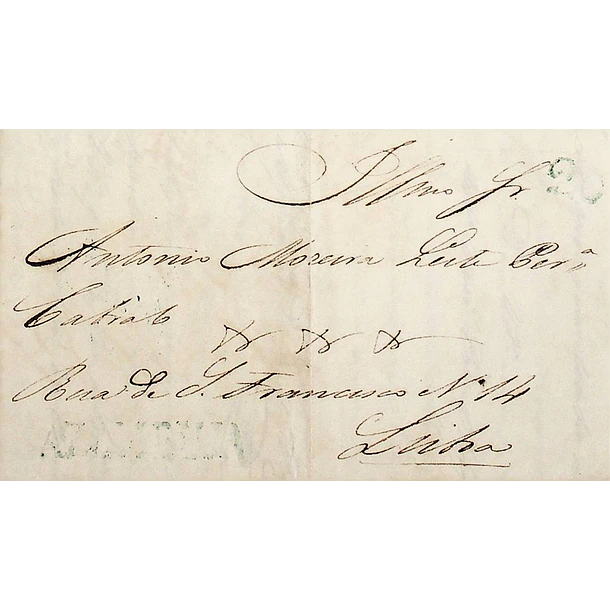 Illmo Sr.
Antonio Moreira Leite Perª
Cabral
Rua de S. Francisco N. 14
Lisboa